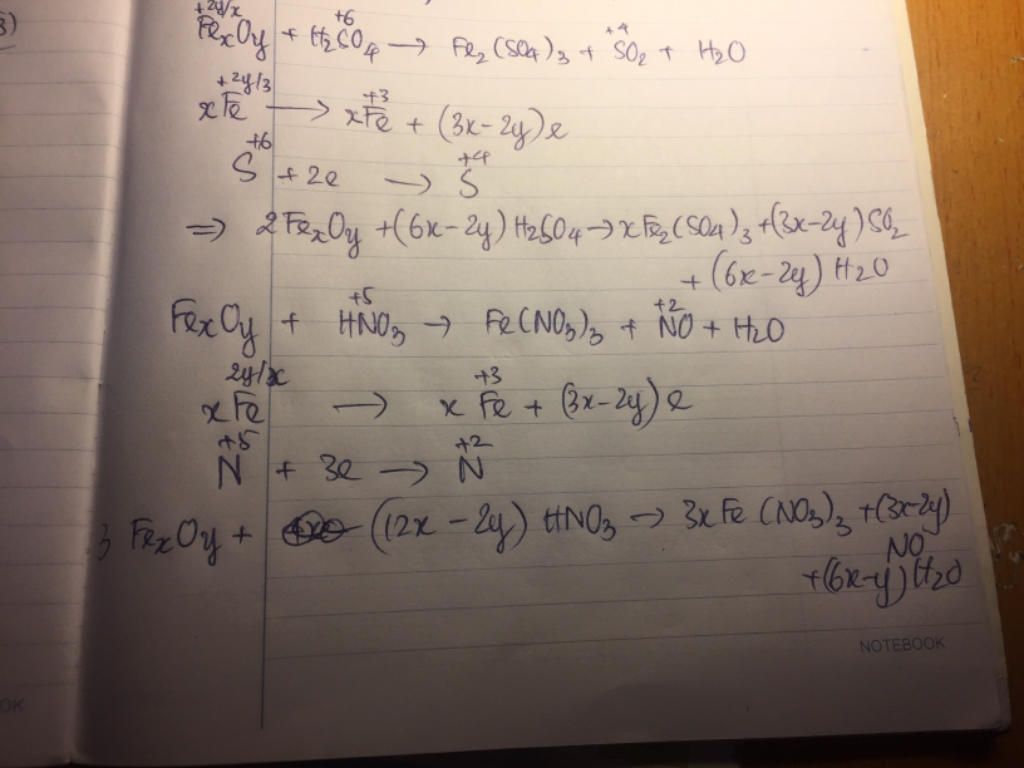 3)
+2y/x +6 +4
FexOy + H2SO4 → Fe2(SO4)3 + SO2 + H2O
+2y/3 +3
xFe → xFe + (3x-2y)e
+6 +4
S + 2e → S
⇒ 2FexOy + (6x-2y) H2SO4 → xFe2(SO4)3 + (3x-2y) SO2
+ (6x-2y) H2O
+5 +2
FexOy + HNO3 → Fe(NO3)3 + NO + H2O
2y/x +3
xFe → xFe + (3x-2y)e
+5 +2
N + 3e → N
3 FexOy + (12x-2y) HNO3 → 3xFe(NO3)3 + (3x-2y)
NO
+(6x-y) H2O
NOTEBOOK
OK